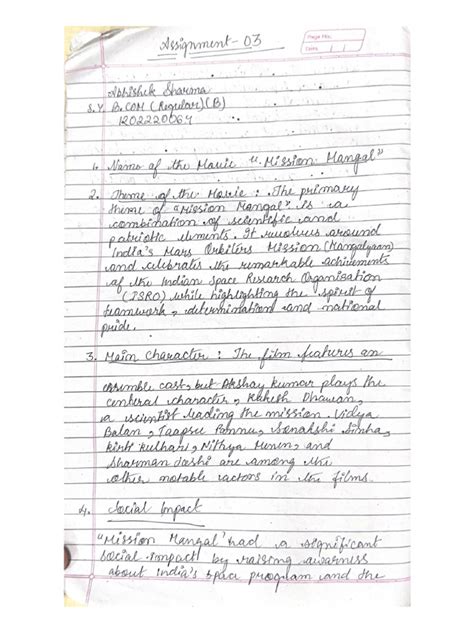 Assignment-03
Page No.
Date
Abhishek Sharma
S.Y. B.COM (Regular)(B)
1202220064
1. Name of the Movie "Mission Mangal"
2. Theme of the Movie : The primary
theme of "Mission Mangal" is a
combination of scientific and
patriotic elements. It revolves around
India's Mars Orbiters Mission (Mangalyaan)
and celebrates the remarkable achievements
of the Indian Space Research Organisation
(ISRO) while highlighting the spirit of
teamwork, determination and national
pride.
3. Main Character : The film features an
ensemble cast, but Akshay kumar plays the
central character, Rakesh Dhawan,
a scientist leading the mission. Vidya
Balan, Taapsee Pannu, Sonakshi Sinha,
kirti kulhari, Nithya Menen, and
Sharman Joshi are among the
other notable actors in the films.
4. Social Impact
"Mission Mangal' had a significant
social impact by raising awarness
about india's space program and the